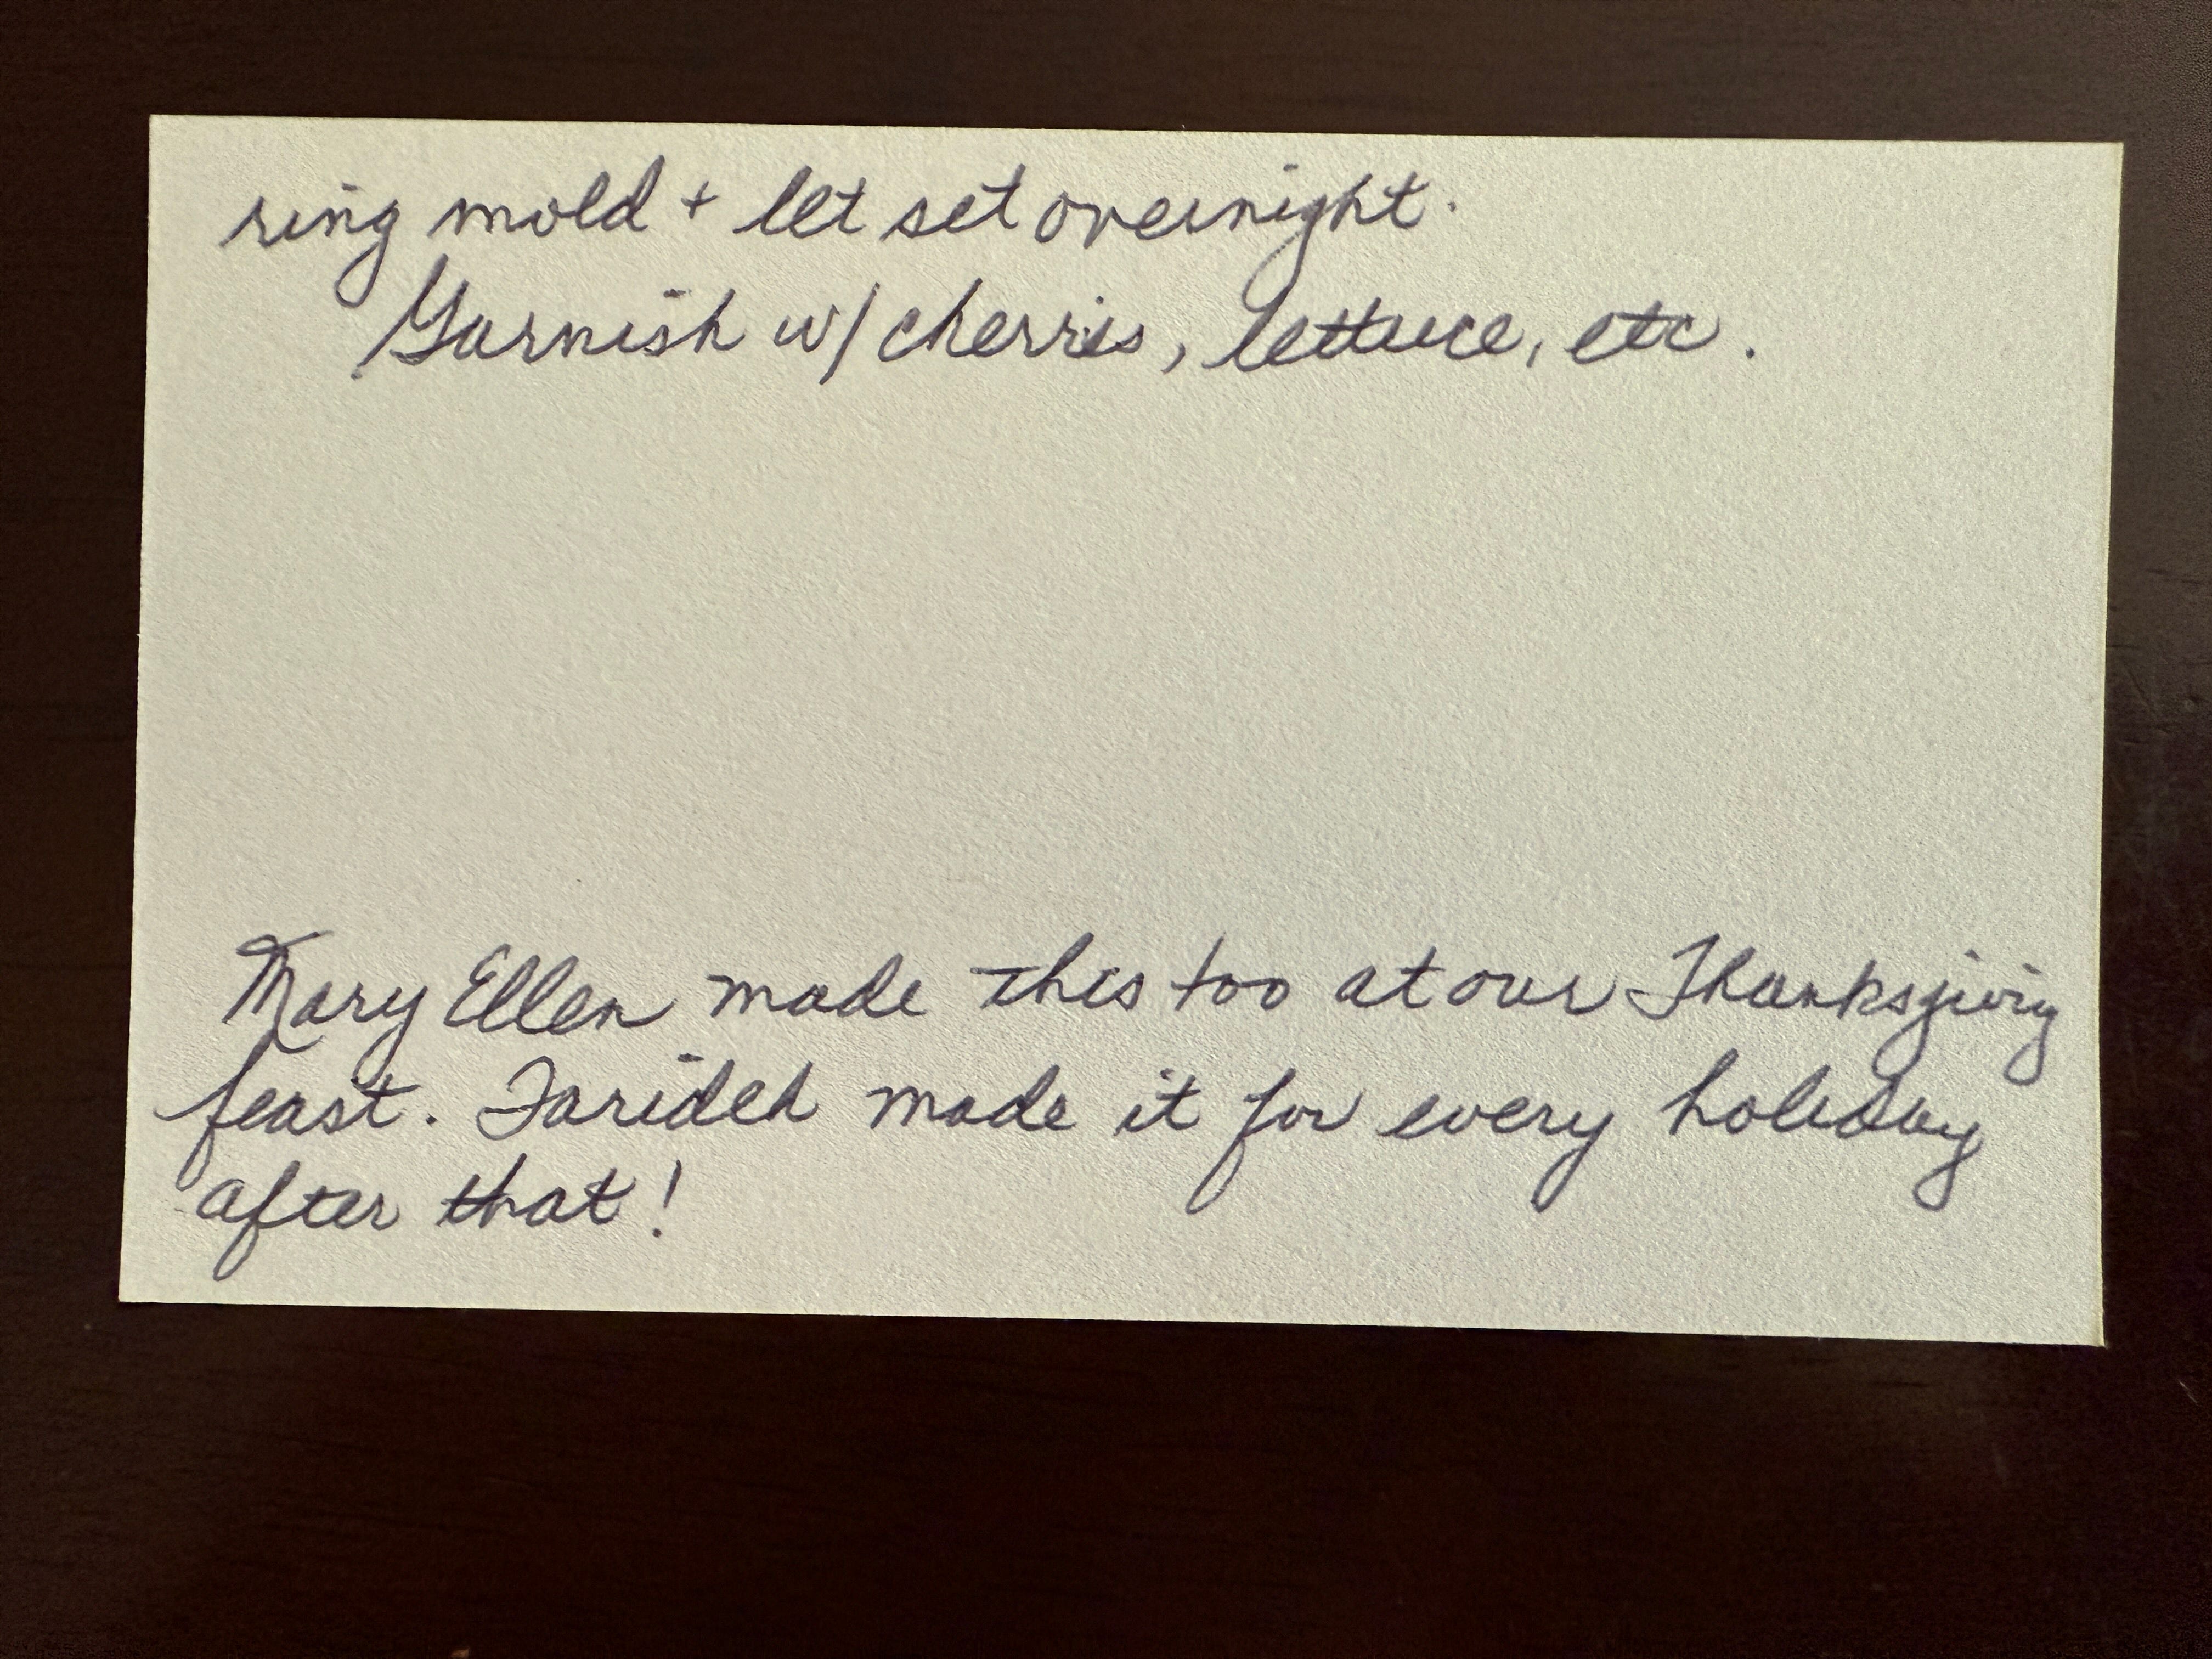 ring mold + let set overnight.
Garnish w/ cherries, lettuce, etc.
Mary Ellen made this too at our Thanksgiving
feast. Farideh made it for every holiday
after that!